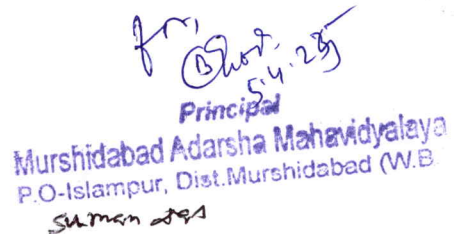 for,
5.4.25
Principal
Murshidabad Adarsha Mahavidyalaya
P.O-Islampur, Dist.Murshidabad (W.B
suman das